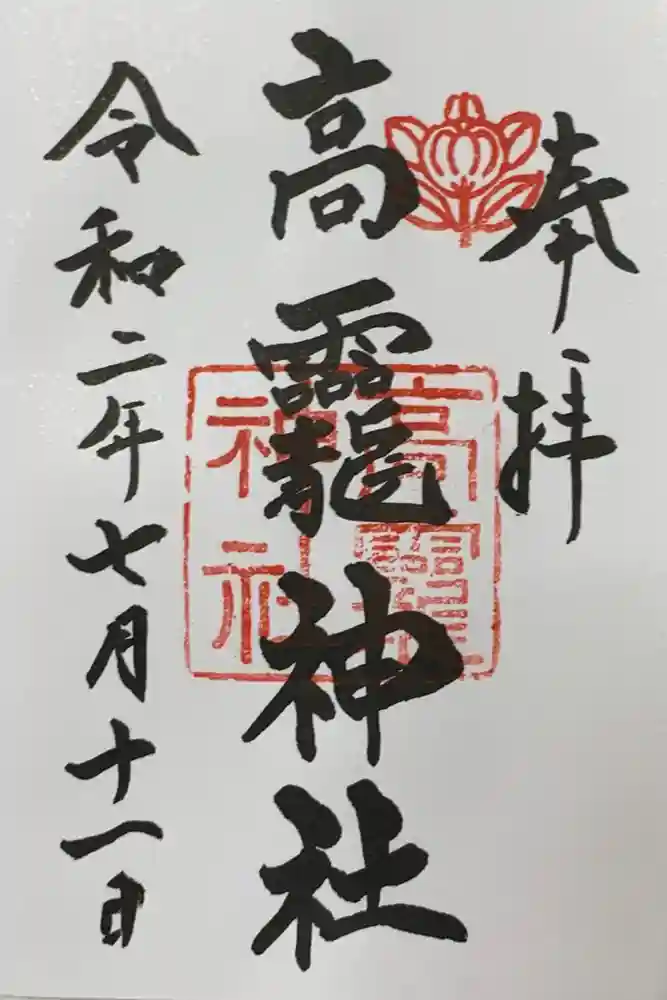 奉拝
高龗神社
令和二年七月十一日
高龗
神社